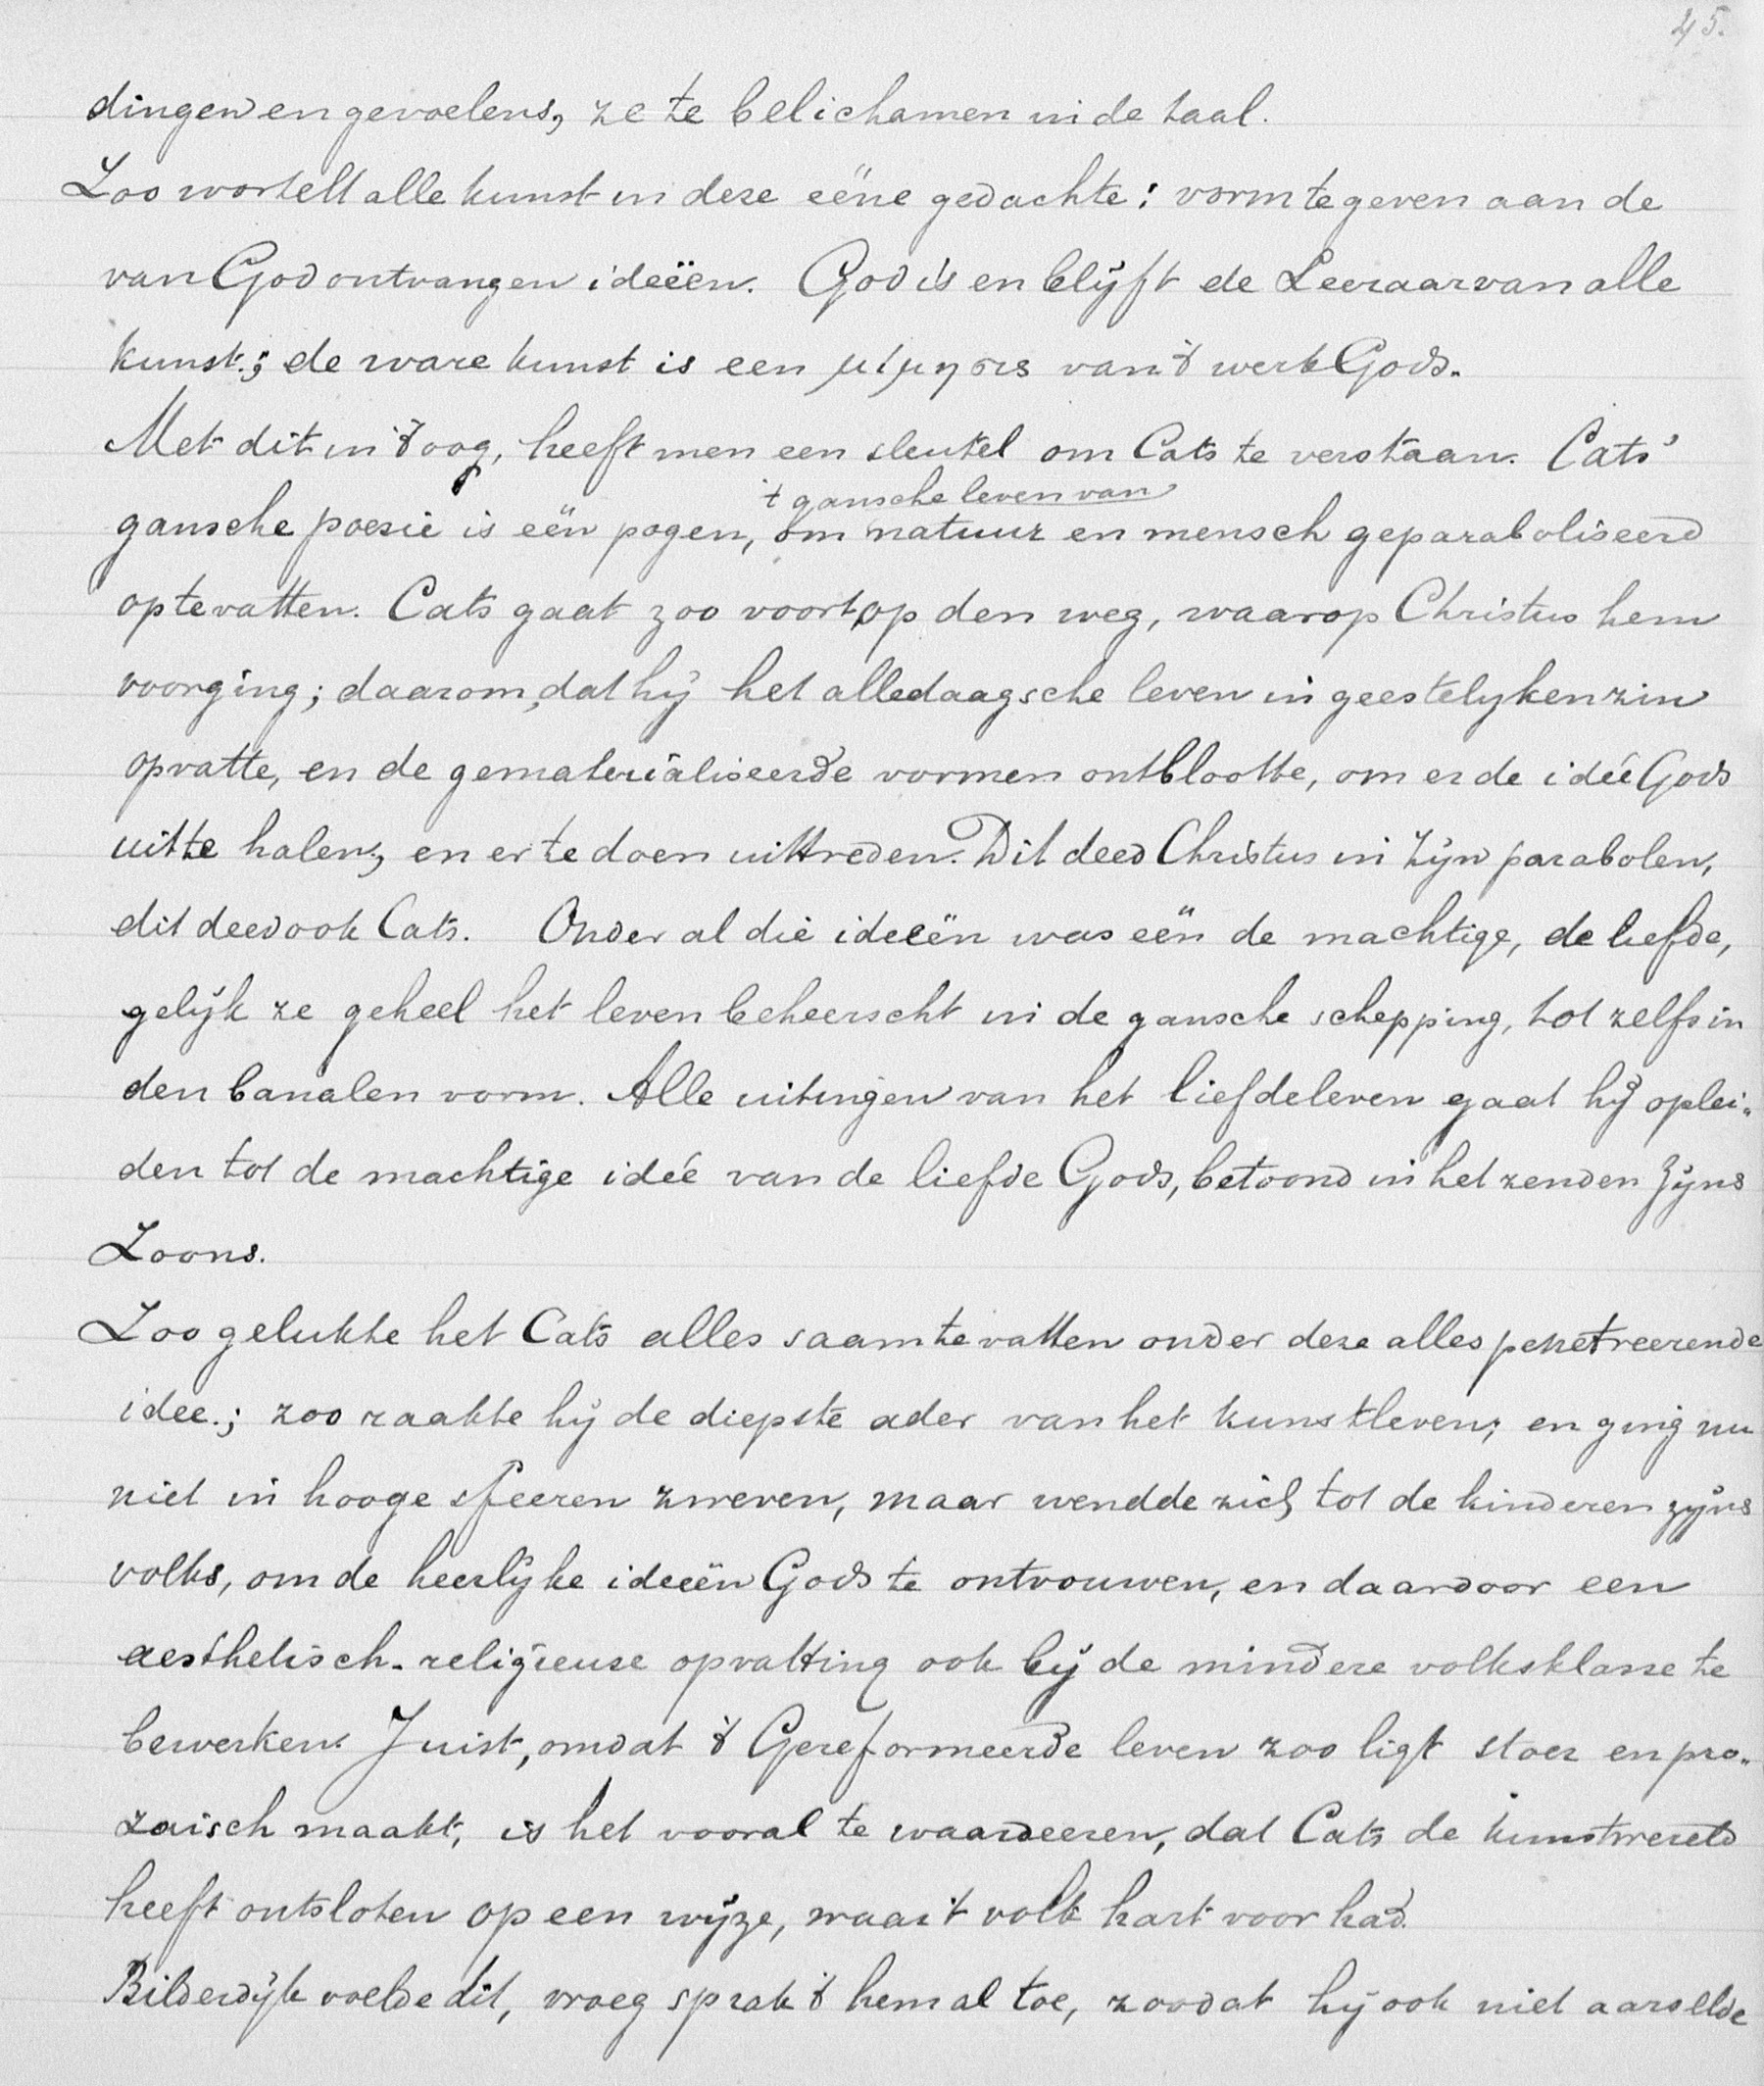 45.
dingen en gevoelens, ze te belichamen in de taal.
Zoo wortelt alle kunst in deze eéne gedachte: vorm te geven aan de
van God ontvangen ideëen. God is en blijft de Leeraar van alle
kunst; de ware kunst is een μίμησις van 't werk Gods.
Met dit in 't oog, heeft men een sleutel om Cats te verstaan. Cats'
't gansche leven van
gansche poesie is eën pogen, om natuur en mensch geparaboliseerd
op te vatten. Cats gaat zoo voort op den weg, waarop Christus hem
voorging; daarom, dat hij het alledaagsche leven in geestelyken zin
opvatte, en de gematerialiseerde vormen ontblootte, om er de ideé Gods
uit te halen, en er te doen uittreden. Dit deed Christus in Zijn parabolen,
dit deed ook Cats. Onder al die ideeën was eën de machtige, de liefde,
gelijk ze geheel het leven beheerscht in de gansche schepping, tot zelfs in
den banalen vorm. Alle uitingen van het liefdeleven gaat hij oplei-
den tot de machtige ideé van de liefde Gods, betoond in het zenden Zijns
Zoons.
Zoo gelukte het Cats alles saam te vatten onder deze alles penetreerende
idee; zoo raakte hij de diepste ader van het kunstleven; en ging nu
niet in hooge sfeeren zweven, maar wendde zich tot de kinderen zijns
volks, om de heerlijke ideeën Gods te ontvouwen, en daardoor een
aesthetisch-religieuse opvatting ook bij de mindere volksklasse te
bewerken. Juist, omdat 't Gereformeerde leven zoo ligt stoer en pro-
zaisch maakt, is het vooral te waardeeren, dat Cats de kunstwereld
heeft ontsloten op een wijze, waar 't volk hart voor had.
Bilderdijk voelde dit, vroeg sprak 't hem al toe, zoodat hij ook niet aarselde